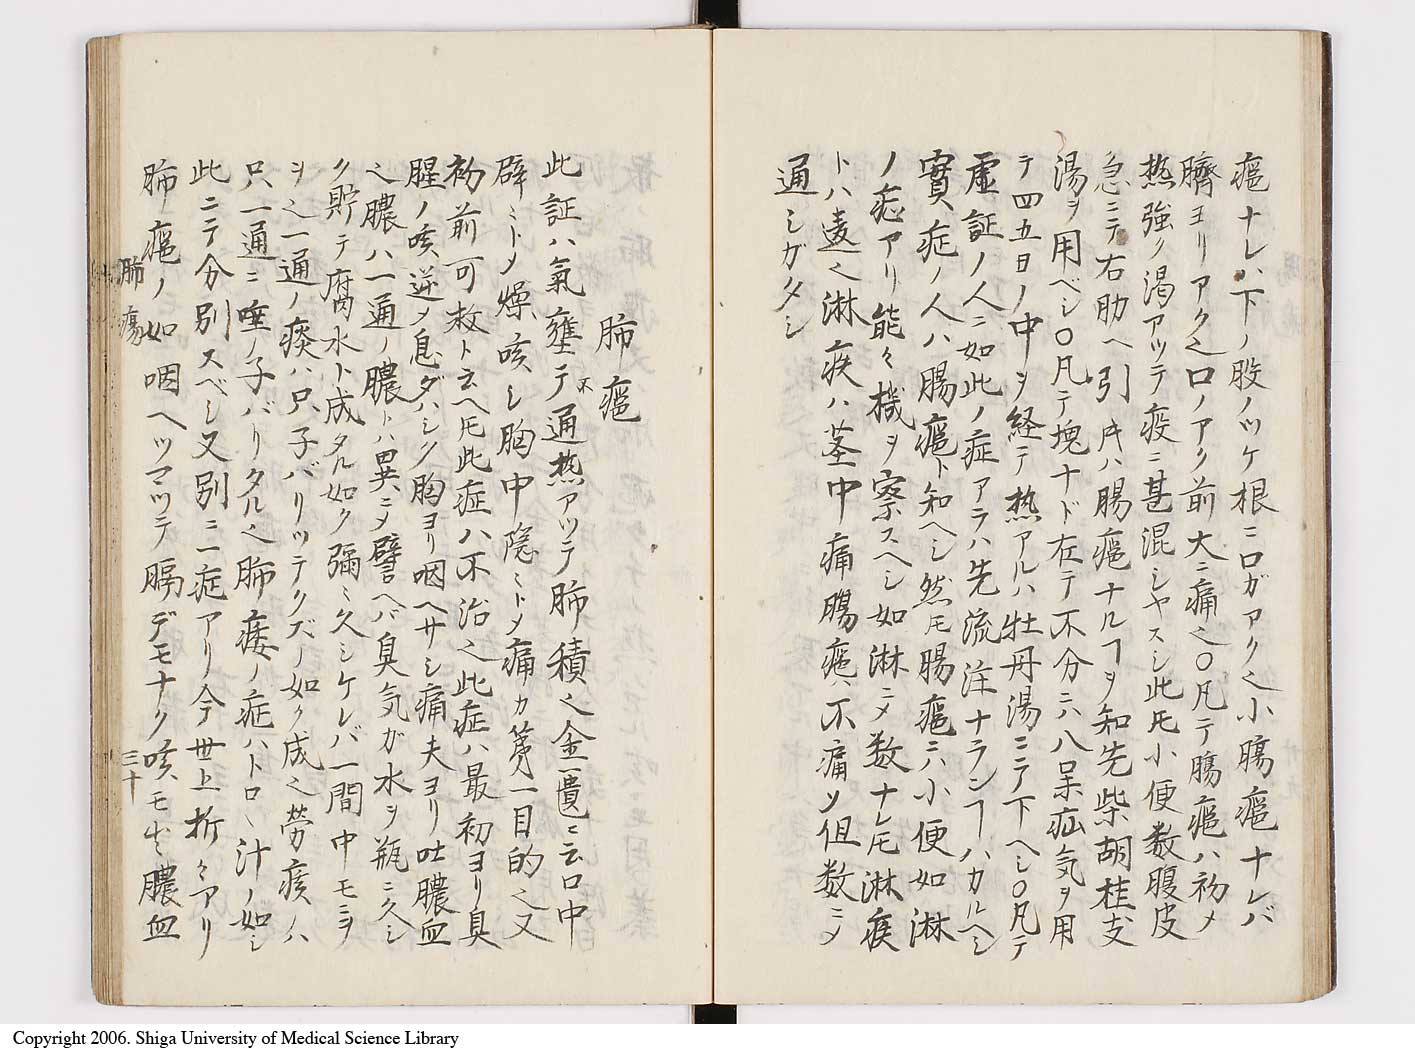 瘟ナレハ下ノ股ノツケ根ニ口ガアク也小腸瘟ナレバ
臍ヨリアク也口ノアク前大ニ痛也〇凡テ腸瘟ハ初メ
熱強ク渇アツテ疫ニ甚混シヤスシ此𪜈小便数腹皮
急ニテ右肋ヘ引𪜈ハ腸瘟ナルヿヲ知先柴胡桂支
湯ヲ用ベシ〇凡テ塊ナド在テ不分ニハ八呆疝気ヲ用
テ四五日ノ中ヲ経テ熱アルハ牡丹湯ニテ下ヘシ〇凡テ
虚証ノ人ニ如此ノ症アラハ先流注ナランヿハカルヘシ
實症ノ人ハ腸瘟ト知ヘシ然𪜈腸瘟ニハ小便如淋
ノ症アリ能々機ヲ察スヘシ如淋ニメ数ナレ𪜈淋疾
トハ違也淋疾ハ茎中痛腸瘟ハ不痛ソ但数ニメ
通シガタシ
肺瘟
此証ハ氣壅テ不通熱アツテ肺積也金匱ニ云口中
辟ミトメ燥咳シ胸中隠ミトメ痛カ第一目的也又
初前可救ト云ヘ𪜈此症ハ不治也此症ハ最初ヨリ臭
腥ノ咳逆メ息ダハシク胸ヨリ咽ヘサシ痛夫ヨリ吐膿血
也膿ハ一通ノ膿トハ異ニメ譬ヘバ臭気ガ水ヲ瓶ニ久シ
ク貯テ腐水ト成タル如ク彌ミ久シケレバ一間中モニヲ
ヲ也一通ノ痰ハ只子バリツテクズノ如ク成也勞痎ハ
只一通ニ唾ノ子バリタル也肺痿ノ症ハトロヽ汁ノ如シ
此ニテ分別スベシ又別ニ一症アリ今世上折々アリ
肺瘟ノ如咽ヘツマツテ膈デモナク咳モ出膿血
肺癰
三十
Copyright 2006. Shiga University of Medical Science Library